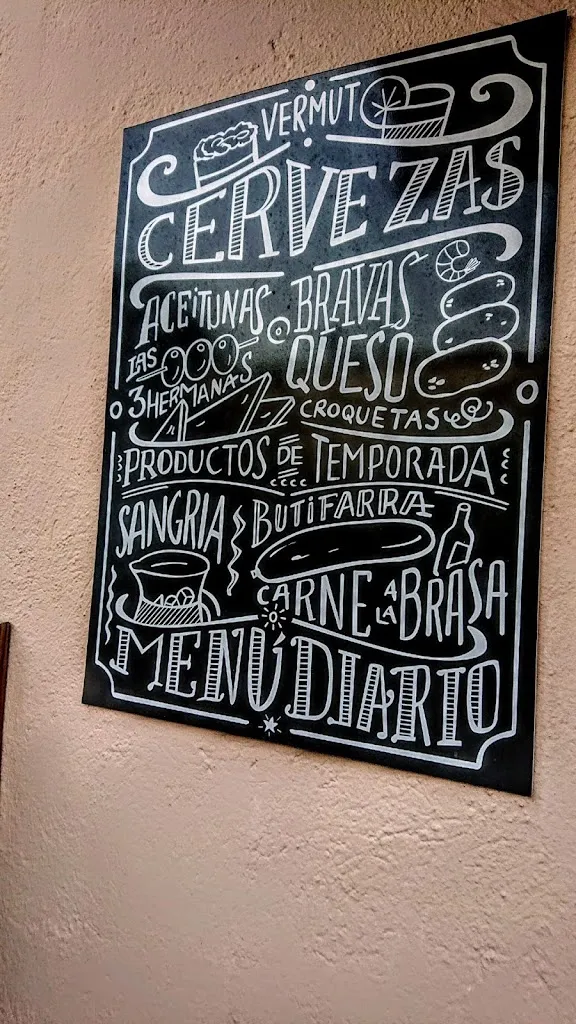 VERMUT
CERVEZAS
ACEITUNAS
LAS
3 HERMANAS
BRAVAS
QUESO
CROQUETAS
PRODUCTOS DE TEMPORADA
SANGRIA
BUTIFARRA
CARNE A LA BRASA
MENÚ DIARIO